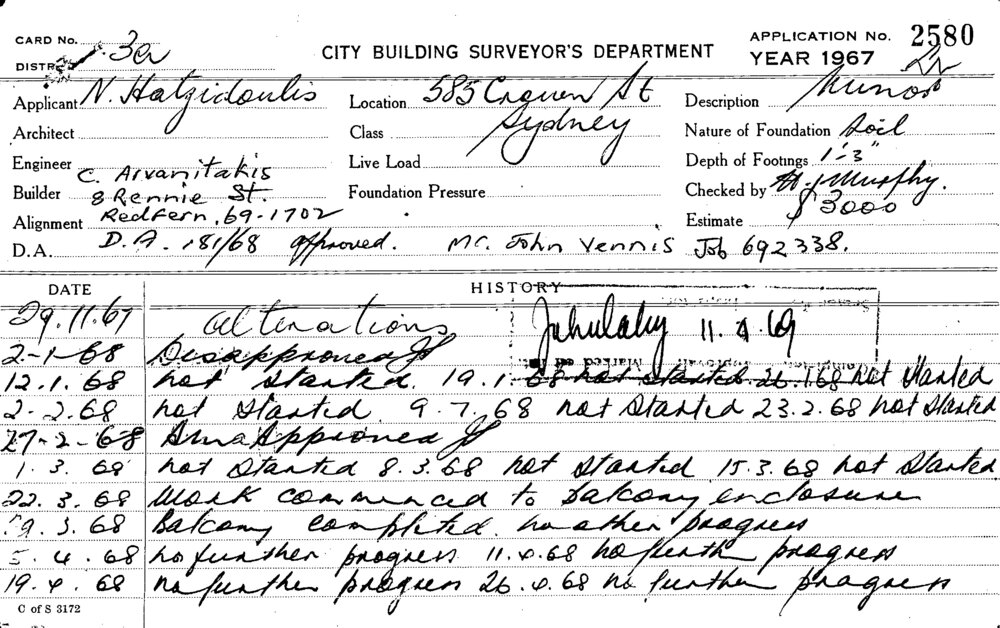 CARD No. 3a
CITY BUILDING SURVEYOR'S DEPARTMENT
APPLICATION No. 2580
YEAR 1967
DISTRICT
Applicant N. Hatzidoulis
Location 585 Crown St
Sydney
Description
Architect
Class
Nature of Foundation Soil
Engineer C. Arvanitakis
Live Load
Depth of Footings 1'-3"
Builder 8 Rennie St.
Foundation Pressure
Checked by Murphy.
Alignment Redfern, 69-1702
Estimate $3000
D.A. D.A. 181/68 approved. Mr. John Vennis Job 692338.
DATE
HISTORY
29.11.67 Alterations
11.4.69
2-1-68 Disapproved
12.1.68 not started. 19.1.68 not started 26.1.68 not started
2.2.68 not started 9.7.68 not started 23.2.68 not started
27-2-68 Approved
1.3.68 not started 8.3.68 not started 15.3.68 not started
22.3.68 Work commenced to balcony enclosure
9.3.68 Balcony completed. no other progress
5.4.68 no further progress 11.4.68 no further progress
19.4.68 no further progress 26.4.68 no further progress
C of S 3172